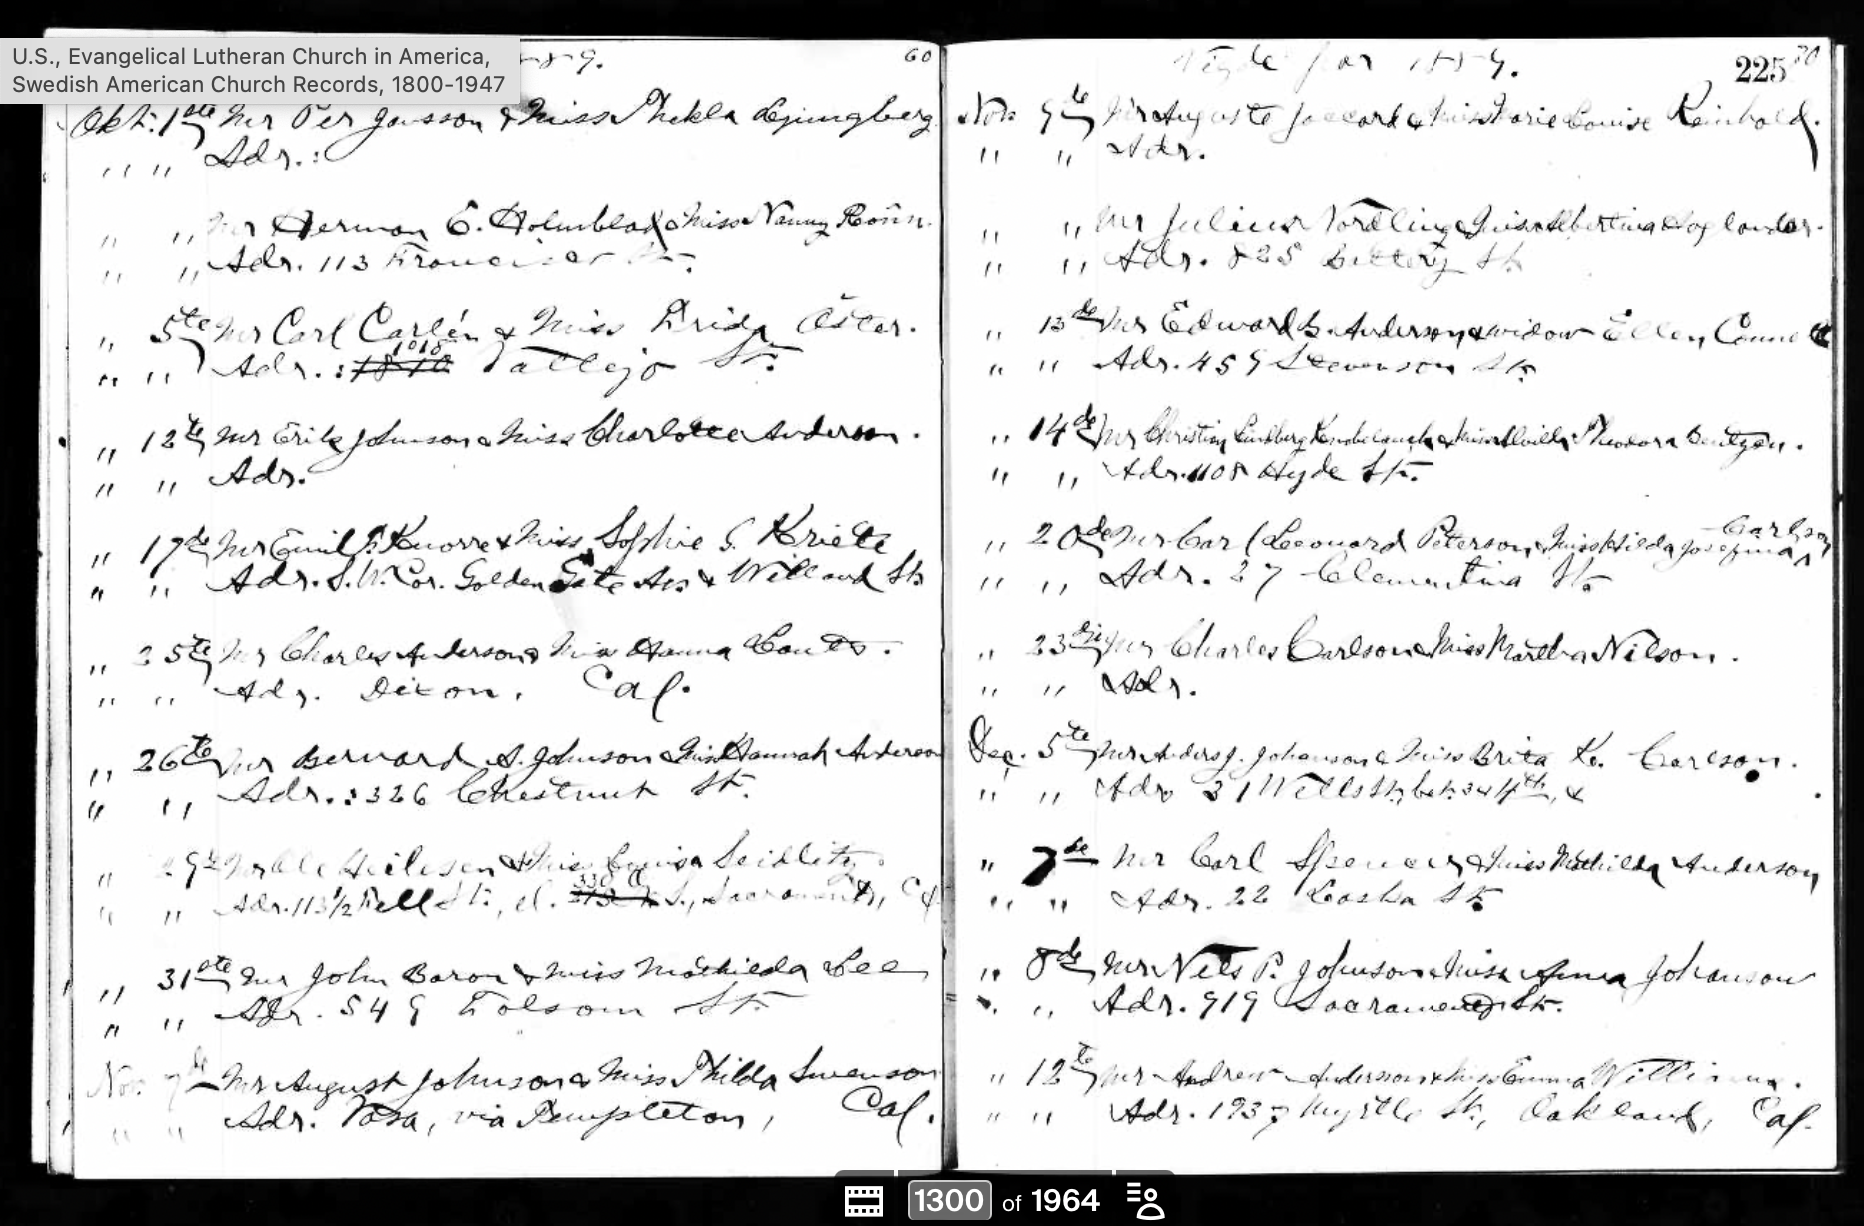 U.S., Evangelical Lutheran Church in America,
Swedish American Church Records, 1800-1947
-89. 60
Okt. 1ste Mr Per Jonsson & Miss Thekla Ljungberg
" " Adr.:
" " Mr Herman E. Holmblad & Miss Nanny Rönn.
" " Adr. 113 Francisco St.
" 5te Mr Carl Carlén & Miss Frida Öster.
" " Adr.: 1810 1010 Vallejo St.
" 12te Mr Erik Johnson & Miss Charlotte Anderson.
" " Adr.
" 17de Mr Emil Knorre & Miss Sophie S. Kriete
" " Adr. S.W. Cor. Golden Gate Av. & Willard St.
" 25te Mr Charles Anderson & Miss Hanna
" " Adr. Dixon, Cal.
" 26te Mr Bernard A. Johnson & Miss Hannah Anderson
" " Adr.: 326 Chestnut St.
" 29de Mr Ole Heilesen & Miss Louisa Seidlitz.
" " Adr. 113 1/2 Fell St., el. 330 S., Sacramento,
" 31ste Mr John Baron & Miss Mathilda Lee
" " Adr. 549 Folsom St.
Nov. 7de Mr August Johnson & Miss Thilda Swenson
" " Adr. Vasa, via Templeton, Cal.
Vigde för 1889. 225 70
Nov. 9de Mr Auguste Jaccard & Miss Marie Louise Reinhold.
" " Adr.
" " Mr Julius Nordling & Miss Albertina Hoglander.
" " Adr. 825 Battery St.
" 13de Mr Edward B. Anderson & widow Ellen
" " Adr. 459 Stevenson St.
" 14de Mr Christian Lindberg Knobelauch & Miss Alvilda Theodora Bentzen.
" " Adr. 1108 Hyde St.
" 20de Mr Carl Leonard Peterson & Miss Hilda Josefina Carlson
" " Adr. 27 Clementina St.
" 23dje Mr Charles Carlson & Miss Martha Nilson.
" " Adr.
Dec. 5te Mr Anders J. Johanson & Miss Brita K. Carlson.
" " Adr. 31 Wells St. bet. 3 & 4th, &
" 7de Mr Carl Spencer & Miss Mathilda Anderson
" " Adr. 22 St.
" 8de Mr Nels P. Johnson & Miss Anna Johanson
" " Adr. 919 Sacramento St.
" 12te Mr Andrew Anderson & Miss Emma Williams.
" " Adr. 1937 Myrtle St., Oakland, Cal.
1300 of 1964